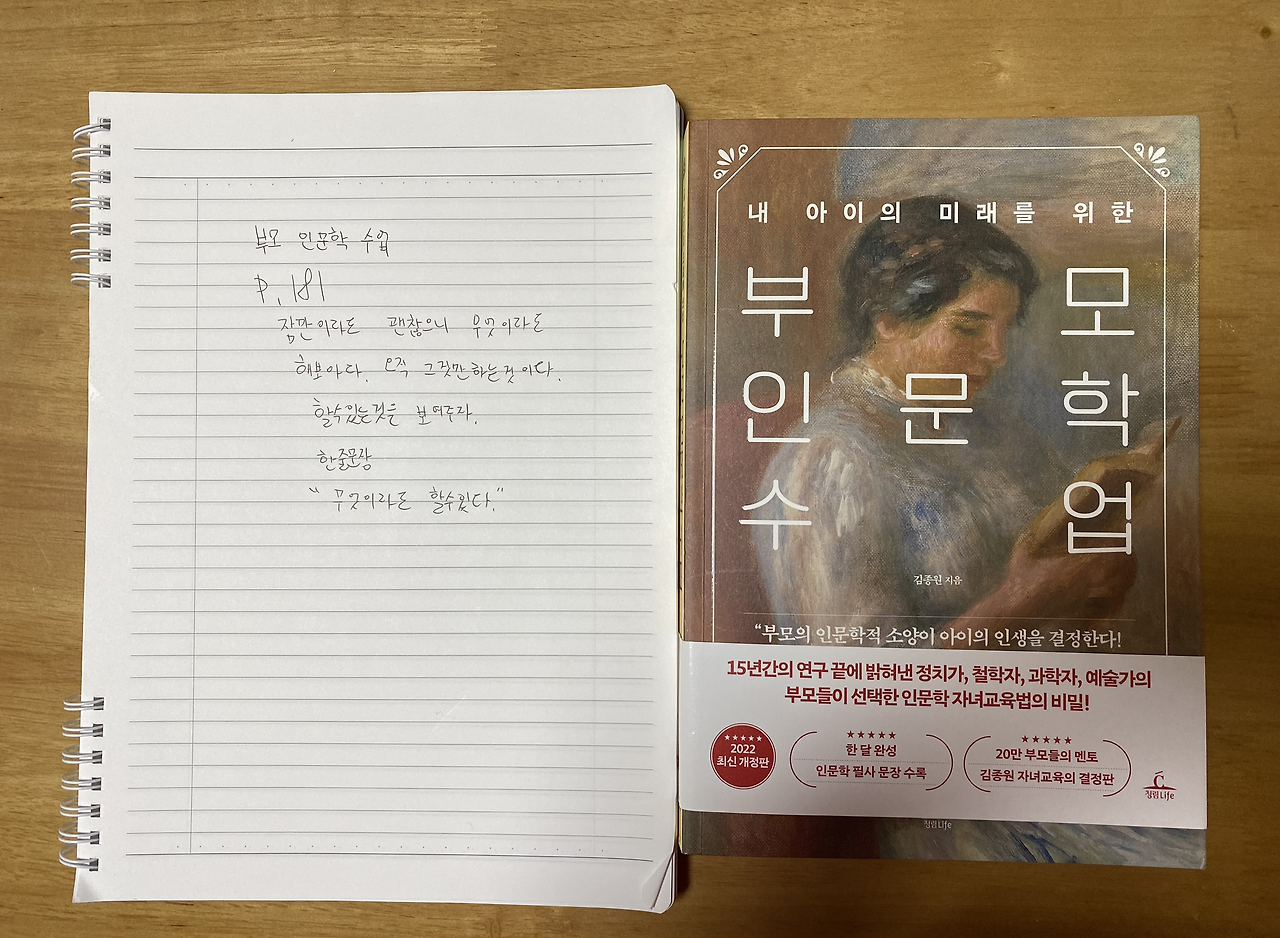 부모 인문학 수업
P. 181
잠깐이라도 괜찮으니 무엇이라도
해보아라. 오직 그것만하는것이다.
할수있는것은 보여주자.
한줄문장
"무엇이라도 할수있다."
내 아이의 미래를 위한
부모
인문학
수업
김종원 지음
"부모의 인문학적 소양이 아이의 인생을 결정한다!
15년간의 연구 끝에 밝혀낸 정치가, 철학자, 과학자, 예술가의
부모들이 선택한 인문학 자녀교육법의 비밀!
★★★★★
2022
최신 개정판
★★★★★
한 달 완성
인문학 필사 문장 수록
★★★★★
20만 부모들의 멘토
김종원 자녀교육의 결정판
청림Life
청림Life